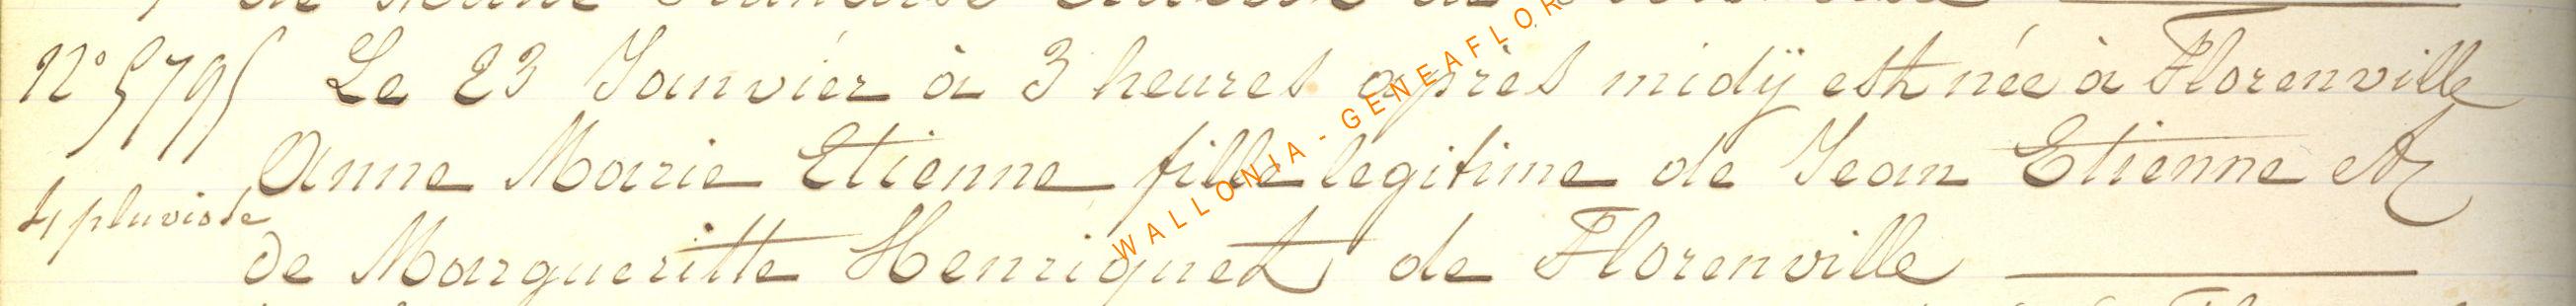 N° 5795 Le 23 Janvier à 3 heures après midÿ est née à Florenville
Anne Marie Etienne fille legitime de Jean Etienne et
4 pluviose
de Margueritte Henriquet de Florenville
WALLONIA - GENEAFLOR